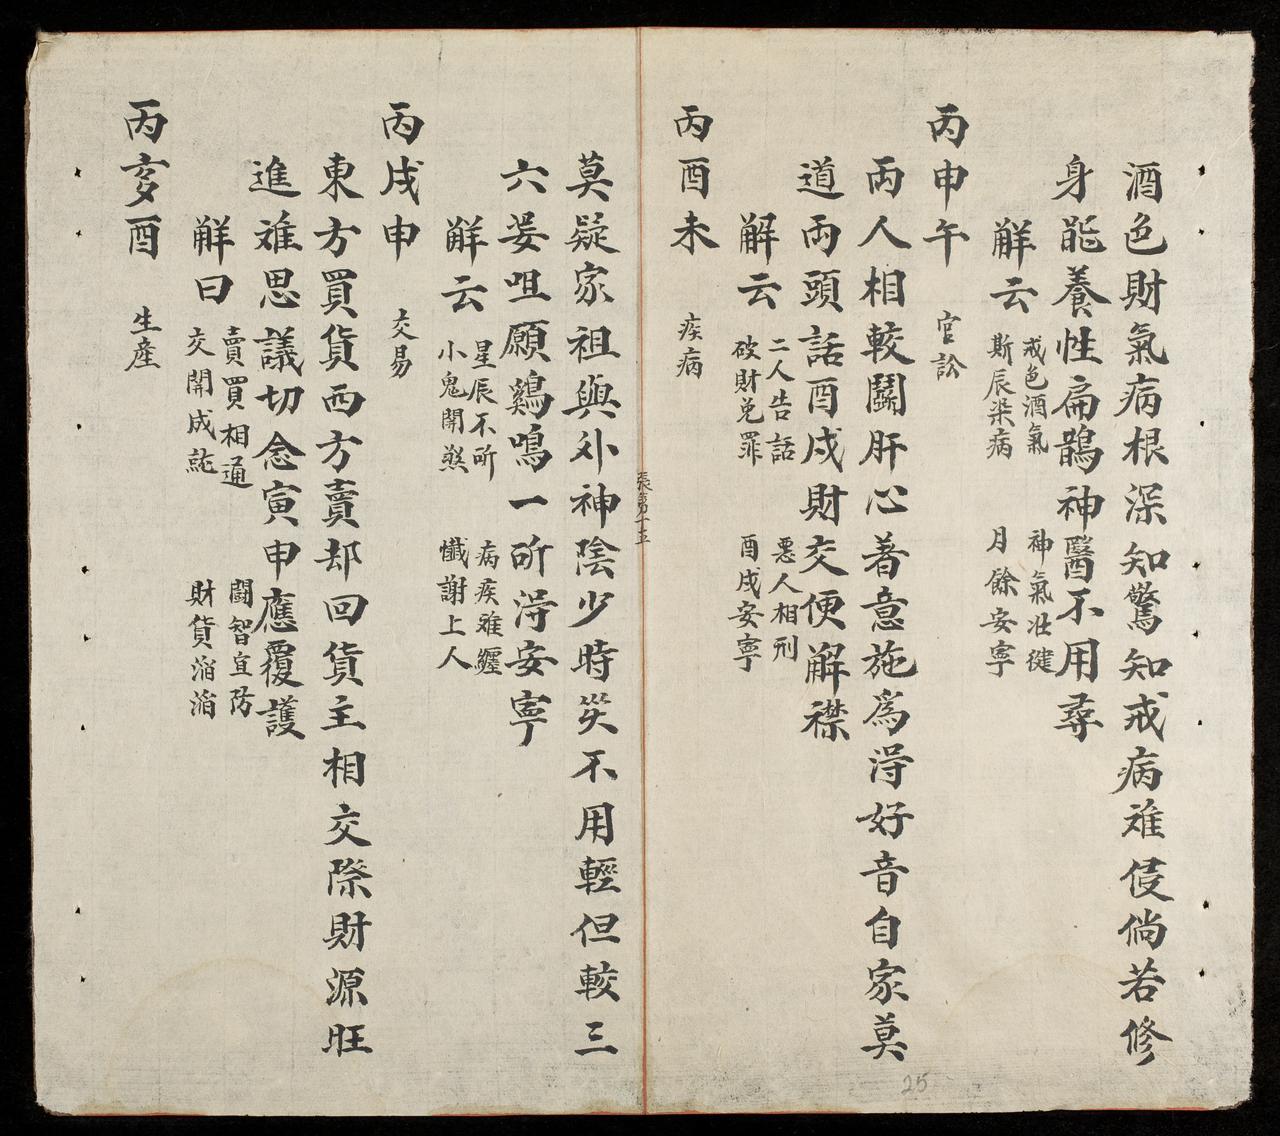 酒色財氣病根深知驚知戒病难侵倘若修
身能養性扁鵲神醫不用尋
解云
戒色酒氣
斯辰染病
神氣壮健
月餘安寧
丙申午
官訟
両人相較鬪肝心著意施爲淂好音自家莫
道両頭話酉戌財交便解襟
解云
二人告話
破財免罪
悪人相刑
酉戌安寧
丙酉未
疾病
莫疑家祖與外神陰少時灾不用輕但較三
六妾咀願鷄鳴一所淂安寧
解云
星辰不所
小鬼開煞
病疾难纒
懺謝上人
張第十五
丙戌申
交易
東方買貨西方賣却回貨主相交際財源旺
進难思議切念寅申應覆護
解曰
賣買相通
交開成訛
鬪智宜防
財貨滔滔
丙亥酉
生産
25